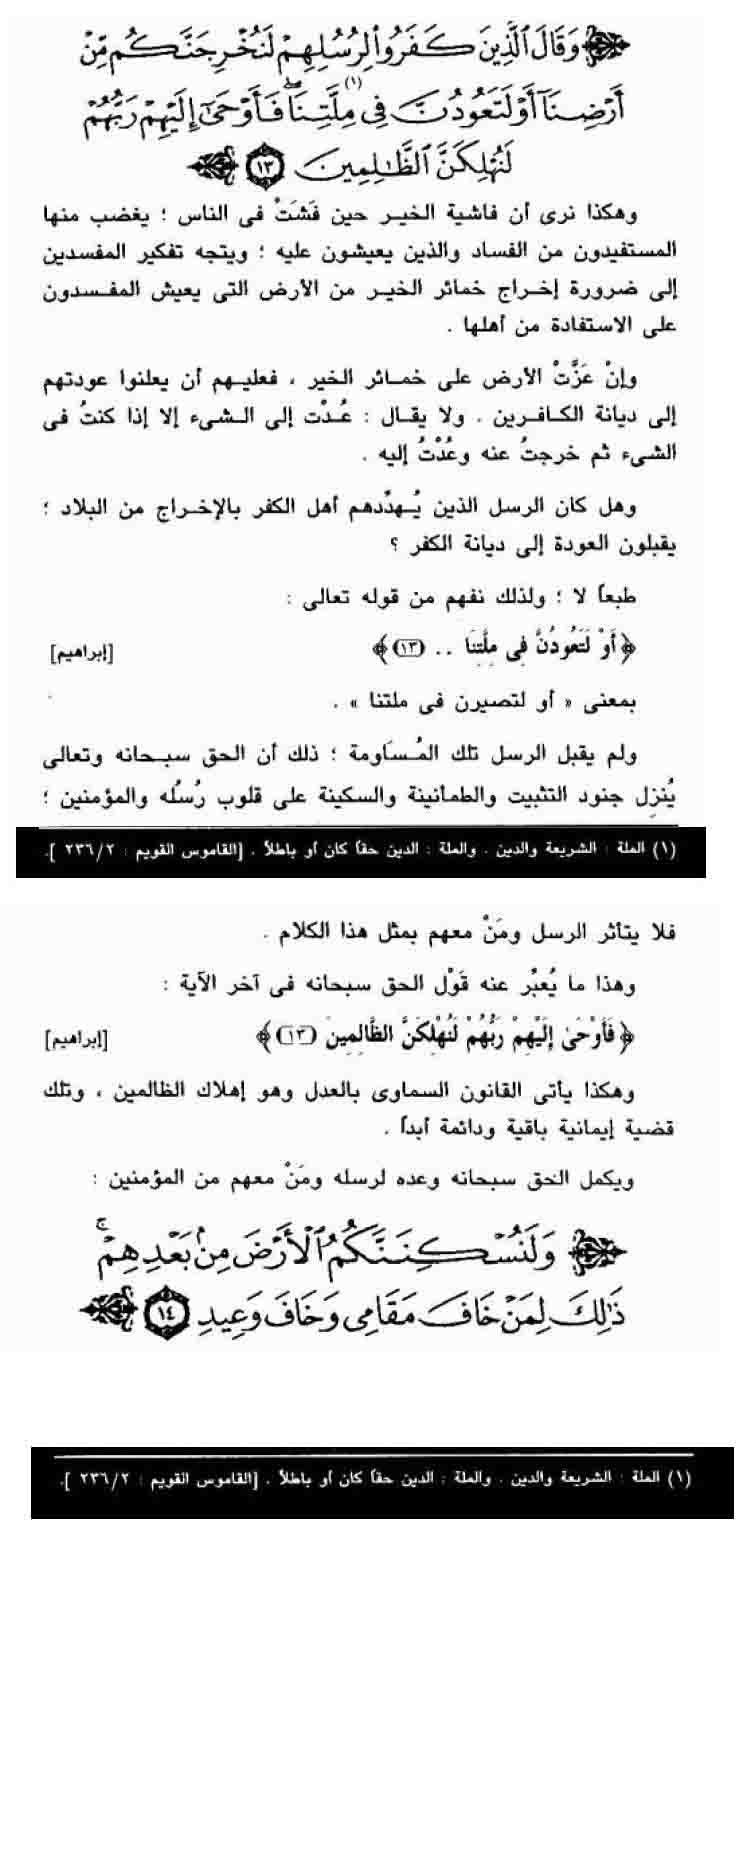 وَقَالَ ٱلَّذِينَ كَفَرُواْ لِرُسُلِهِمۡ لَنُخۡرِجَنَّكُم مِّنۡ
أَرۡضِنَآ أَوۡ لَتَعُودُنَّ فِي مِلَّتِنَاۖ (١) فَأَوۡحَىٰٓ إِلَيۡهِمۡ رَبُّهُمۡ
لَنُهۡلِكَنَّ ٱلظَّٰلِمِينَ ١٣
وهكذا نرى أن فاشية الخير حين فَشَتْ فى الناس ؛ يغضب منها
المستفيدون من الفساد والذين يعيشون عليه ؛ ويتجه تفكير المفسدين
إلى ضرورة إخراج خمائر الخير من الأرض التى يعيش المفسدون
على الاستفادة من أهلها .
وإنْ عَزَّتْ الأرض على خمائر الخير ، فعليهم أن يعلنوا عودتهم
إلى ديانة الكافرين . ولا يقال : عُدْت إلى الشىء إلا إذا كنتُ فى
الشىء ثم خرجتُ عنه وعُدْتُ إليه .
وهل كان الرسل الذين يُهدِّدهم أهل الكفر بالإخراج من البلاد ؛
يقبلون العودة إلى ديانة الكفر ؟
طبعاً لا ؛ ولذلك نفهم من قوله تعالى :
﴿ أَوْ لَتَعُودُنَّ فِى مِلَّتِنَا .. (١٣) ﴾ [إبراهيم]
بمعنى « أو لتصيرن فى ملتنا » .
ولم يقبل الرسل تلك المُسَاومة ؛ ذلك أن الحق سبحانه وتعالى
يُنزِل جنود التثبيت والطمأنينة والسكينة على قلوب رُسُله والمؤمنين ؛
(١) الملة : الشريعة والدين . والملة : الدين حقاً كان أو باطلاً . [القاموس القويم : ٢٣٦/٢ ].
فلا يتأثر الرسل ومَنْ معهم بمثل هذا الكلام .
وهذا ما يُعبِّر عنه قَوْل الحق سبحانه فى آخر الآية :
﴿ فَأَوْحَىٰ إِلَيْهِمْ رَبُّهُمْ لَنُهْلِكَنَّ الظَّالِمِينَ (١٣) ﴾ [إبراهيم]
وهكذا يأتى القانون السماوى بالعدل وهو إهلاك الظالمين ، وتلك
قضية إيمانية باقية ودائمة أبداً .
ويكمل الحق سبحانه وعده لرسله ومَنْ معهم من المؤمنين :
وَلَنُسۡكِنَنَّكُمُ ٱلۡأَرۡضَ مِنۢ بَعۡدِهِمۡۚ
ذَٰلِكَ لِمَنۡ خَافَ مَقَامِي وَخَافَ وَعِيدِ ١٤
(١) الملة : الشريعة والدين . والملة : الدين حقاً كان أو باطلاً . [القاموس القويم : ٢٣٦/٢ ].